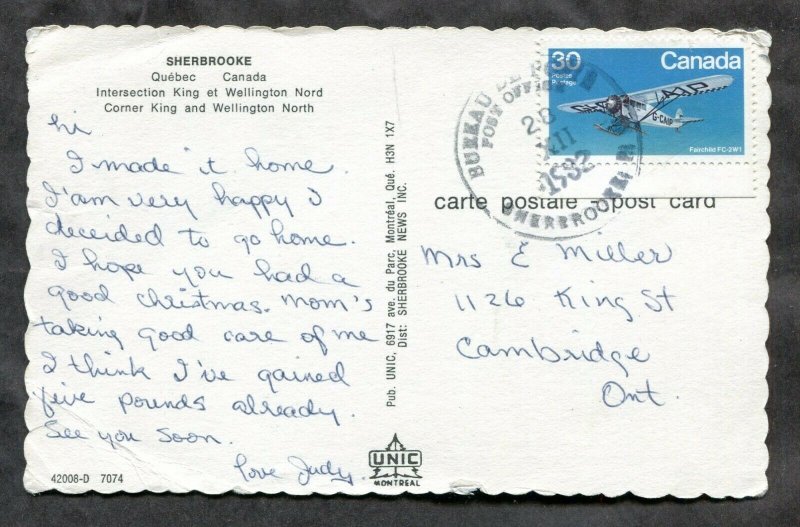 SHERBROOKE
Québec Canada
Intersection King et Wellington Nord
Corner King and Wellington North
hi
I made it home.
I'am very happy I
decided to go home.
I hope you had a
good christmas. mom's
taking good care of me
I think I've gained
five pounds already.
See you soon.
love Judy.
42008-D 7074
Pub. UNIC, 6917 ave. du Parc, Montréal, Qué. H3N 1X7
Dist: SHERBROOKE NEWS INC.
UNIC
MONTRÉAL
30
Postes
Postage
Canada
G-CAIP
G-CAIP
Fairchild FC-2W1
BUREAU DE
POST OFFICE
XII
1982
SHERBROOKE
carte postale - post card
Mrs E Miller
1126 King St
Cambridge
Ont.